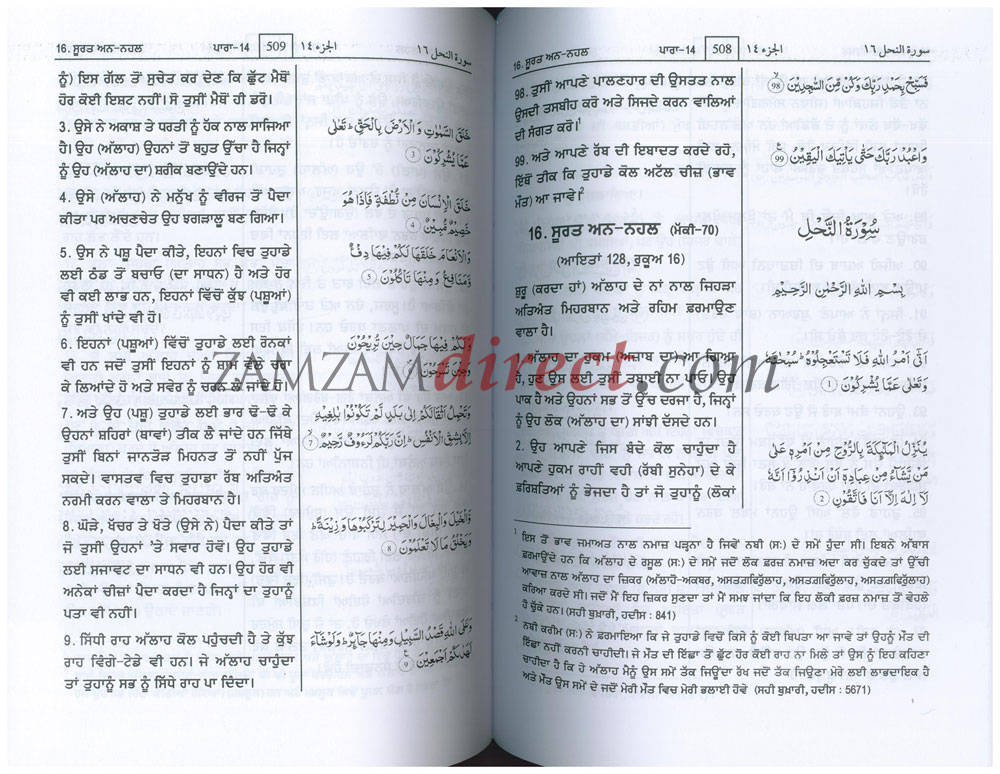 16. ਸੂਰਤ ਅਨ-ਨਹਲ ਪਾਰਾ-14 508 الجزء ١٤ سورة النحل ١٦
98. ਤੁਸੀਂ ਆਪਣੇ ਪਾਲਣਹਾਰ ਦੀ ਉਸਤਤ ਨਾਲ
ਉਸਦੀ ਤਸਬੀਹ ਕਰੋ ਅਤੇ ਸਿਜਦੇ ਕਰਨ ਵਾਲਿਆਂ
ਦੀ ਸੰਗਤ ਕਰੋ।¹
فَسَبِّحْ بِحَمْدِ رَبِّكَ وَكُنْ مِّنَ السّٰجِدِيْنَ 98
99. ਅਤੇ ਆਪਣੇ ਰੱਬ ਦੀ ਇਬਾਦਤ ਕਰਦੇ ਰਹੋ,
ਇੱਥੋਂ ਤੀਕ ਕਿ ਤੁਹਾਡੇ ਕੋਲ ਅਟੱਲ ਚੀਜ਼ (ਭਾਵ
ਮੌਤ) ਆ ਜਾਵੇ।²
وَاعْبُدْ رَبَّكَ حَتّٰى يَاْتِيَكَ الْيَقِيْنُ 99
16. ਸੂਰਤ ਅਨ-ਨਹਲ (ਮੱਕੀ-70)
(ਆਇਤਾਂ 128, ਰੁਕੂਅ 16)
سُوْرَةُ النَّحْلِ
ਸ਼ੁਰੂ (ਕਰਦਾ ਹਾਂ) ਅੱਲਾਹ ਦੇ ਨਾਂ ਨਾਲ ਜਿਹੜਾ
ਅਤਿਅੰਤ ਮਿਹਰਬਾਨ ਅਤੇ ਰਹਿਮ ਫ਼ਰਮਾਉਣ
ਵਾਲਾ ਹੈ।
بِسْمِ اللهِ الرَّحْمٰنِ الرَّحِيْمِ
1. ਅੱਲਾਹ ਦਾ ਹੁਕਮ (ਅਜ਼ਾਬ ਦਾ) ਆ ਗਿਆ
ਹੈ, ਹੁਣ ਉਸ ਲਈ ਤੁਸੀਂ ਤਬਾਹੀ ਨਾ ਪਾਓ। ਉਹ
ਪਾਕ ਹੈ ਅਤੇ ਉਹਨਾਂ ਸਭ ਤੋਂ ਉੱਚ ਦਰਜਾ ਹੈ, ਜਿਨ੍ਹਾਂ
ਨੂੰ ਉਹ ਲੋਕ (ਅੱਲਾਹ ਦਾ) ਸਾਂਝੀ ਦੱਸਦੇ ਹਨ।
اَتٰٓى اَمْرُ اللهِ فَلَا تَسْتَعْجِلُوْهُ ؕ سُبْحٰنَهٗ
وَتَعٰلٰى عَمَّا يُشْرِكُوْنَ 1
2. ਉਹ ਆਪਣੇ ਜਿਸ ਬੰਦੇ ਕੋਲ ਚਾਹੁੰਦਾ ਹੈ
ਆਪਣੇ ਹੁਕਮ ਰਾਹੀਂ ਵਹੀ (ਰੱਬੀ ਸੁਨੇਹਾ) ਦੇ ਕੇ
ਫ਼ਰਿਸ਼ਤਿਆਂ ਨੂੰ ਭੇਜਦਾ ਹੈ ਤਾਂ ਜੋ ਤੁਹਾਨੂੰ (ਲੋਕਾਂ
يُنَزِّلُ الْمَلٰٓئِكَةَ بِالرُّوْحِ مِنْ اَمْرِهٖ عَلٰى
مَنْ يَّشَآءُ مِنْ عِبَادِهٖٓ اَنْ اَنْذِرُوْٓا اَنَّهٗ
لَآ اِلٰهَ اِلَّآ اَنَا فَاتَّقُوْنِ 2
¹ ਇਸ ਤੋਂ ਭਾਵ ਜਮਾਅਤ ਨਾਲ ਨਮਾਜ਼ ਪੜ੍ਹਨਾ ਹੈ ਜਿਵੇਂ ਨਬੀ (ਸ:) ਦੇ ਸਮੇਂ ਹੁੰਦਾ ਸੀ। ਇਬਨੇ ਅੱਬਾਸ
ਫ਼ਰਮਾਉਂਦੇ ਹਨ ਕਿ ਅੱਲਾਹ ਦੇ ਰਸੂਲ (ਸ:) ਦੇ ਸਮੇਂ ਜਦੋਂ ਲੋਕ ਫ਼ਰਜ਼ ਨਮਾਜ਼ ਅਦਾ ਕਰ ਚੁੱਕਦੇ ਤਾਂ ਉੱਚੀ
ਆਵਾਜ਼ ਨਾਲ ਅੱਲਾਹ ਦਾ ਜ਼ਿਕਰ (ਅੱਲਾਹੋ-ਅਕਬਰ, ਅਸਤਗ਼ਫਿਰੁੱਲਾਹ, ਅਸਤਗ਼ਫਿਰੁੱਲਾਹ, ਅਸਤਗ਼ਫਿਰੁੱਲਾਹ)
ਕਰਿਆ ਕਰਦੇ ਸੀ। ਜਦੋਂ ਮੈਂ ਇਹ ਜ਼ਿਕਰ ਸੁਣਦਾ ਤਾਂ ਮੈਂ ਸਮਝ ਜਾਂਦਾ ਕਿ ਇਹ ਲੋਕੀ ਫ਼ਰਜ਼ ਨਮਾਜ਼ ਤੋਂ ਵੇਹਲੇ
ਹੋ ਚੁੱਕੇ ਹਨ। (ਸਹੀ ਬੁਖ਼ਾਰੀ, ਹਦੀਸ : 841)
² ਨਬੀ ਕਰੀਮ (ਸ:) ਨੇ ਫ਼ਰਮਾਇਆ ਕਿ ਜੇ ਤੁਹਾਡੇ ਵਿਚੋਂ ਕਿਸੇ ਨੂੰ ਕੋਈ ਬਿਪਤਾ ਆ ਜਾਵੇ ਤਾਂ ਉਹਨੂੰ ਮੌਤ ਦੀ
ਇੱਛਾ ਨਹੀਂ ਕਰਨੀ ਚਾਹੀਦੀ। ਜੇ ਮੌਤ ਦੀ ਇੱਛਾ ਤੋਂ ਛੁੱਟ ਹੋਰ ਕੋਈ ਰਾਹ ਨਾ ਮਿਲੇ ਤਾਂ ਉਸ ਨੂੰ ਇਹ ਕਹਿਣਾ
ਚਾਹੀਦਾ ਹੈ ਕਿ ਹੇ ਅੱਲਾਹ ਮੈਨੂੰ ਉਸ ਸਮੇਂ ਤੱਕ ਜਿਊਂਦਾ ਰੱਖ ਜਦੋਂ ਤੱਕ ਜਿਊਣਾ ਮੇਰੇ ਲਈ ਲਾਭਦਾਇਕ ਹੈ
ਅਤੇ ਮੌਤ ਉਸ ਸਮੇਂ ਦੇ ਜਦੋਂ ਮੇਰੀ ਮੌਤ ਵਿਚ ਮੇਰੀ ਭਲਾਈ ਹੋਵੇ (ਸਹੀ ਬੁਖ਼ਾਰੀ, ਹਦੀਸ : 5671)
16. ਸੂਰਤ ਅਨ-ਨਹਲ ਪਾਰਾ-14 509 الجزء ١٤ سورة النحل ١٦
ਨੂੰ) ਇਸ ਗੱਲ ਤੋਂ ਸੁਚੇਤ ਕਰ ਦੇਣ ਕਿ ਛੁੱਟ ਮੈਥੋਂ
ਹੋਰ ਕੋਈ ਇਸ਼ਟ ਨਹੀਂ। ਸੋ ਤੁਸੀਂ ਮੈਥੋਂ ਹੀ ਡਰੋ।
3. ਉਸੇ ਨੇ ਅਕਾਸ਼ ਤੇ ਧਰਤੀ ਨੂੰ ਹੱਕ ਨਾਲ ਸਾਜਿਆ
ਹੈ। ਉਹ (ਅੱਲਾਹ) ਉਹਨਾਂ ਤੋਂ ਬਹੁਤ ਉੱਚਾ ਹੈ ਜਿਨ੍ਹਾਂ
ਨੂੰ ਉਹ (ਅੱਲਾਹ ਦਾ) ਸ਼ਰੀਕ ਬਣਾਉਂਦੇ ਹਨ।
خَلَقَ السَّمٰوٰتِ وَ الْاَرْضَ بِالْحَقِّ ؕ تَعٰلٰى
عَمَّا يُشْرِكُوْنَ 3
4. ਉਸੇ (ਅੱਲਾਹ) ਨੇ ਮਨੁੱਖ ਨੂੰ ਵੀਰਜ ਤੋਂ ਪੈਦਾ
ਕੀਤਾ ਪਰ ਅਚਣਚੇਤ ਉਹ ਝਗੜਾਲੂ ਬਣ ਗਿਆ।
خَلَقَ الْاِنْسَانَ مِنْ نُّطْفَةٍ فَاِذَا هُوَ
خَصِيْمٌ مُّبِيْنٌ 4
5. ਉਸ ਨੇ ਪਸ਼ੂ ਪੈਦਾ ਕੀਤੇ, ਇਹਨਾਂ ਵਿਚ ਤੁਹਾਡੇ
ਲਈ ਠੰਡ ਤੋਂ ਬਚਾਓ (ਦਾ ਸਾਧਨ) ਹੈ ਅਤੇ ਹੋਰ
ਵੀ ਕਈ ਲਾਭ ਹਨ, ਇਹਨਾਂ ਵਿੱਚੋਂ ਕੁੱਝ (ਪਸ਼ੂਆਂ)
ਨੂੰ ਤੁਸੀਂ ਖਾਂਦੇ ਵੀ ਹੋ।
وَالْاَنْعَامَ خَلَقَهَا لَكُمْ فِيْهَا دِفْءٌ
وَّمَنَافِعُ وَ مِنْهَا تَاْكُلُوْنَ 5
6. ਇਹਨਾਂ (ਪਸ਼ੂਆਂ) ਵਿੱਚੋਂ ਤੁਹਾਡੇ ਲਈ ਰੌਣਕਾਂ
ਵੀ ਹਨ ਜਦੋਂ ਤੁਸੀਂ ਇਹਨਾਂ ਨੂੰ ਸ਼ਾਮ ਵੇਲੇ ਚਰਾ
ਕੇ ਲਿਆਂਦੇ ਹੋ ਅਤੇ ਸਵੇਰ ਨੂੰ ਚਰਾਣ ਲੈ ਜਾਂਦੇ ਹੋ।
وَلَكُمْ فِيْهَا جَمَالٌ حِيْنَ تُرِيْحُوْنَ
وَحِيْنَ تَسْرَحُوْنَ 6
7. ਅਤੇ ਉਹ (ਪਸ਼ੂ) ਤੁਹਾਡੇ ਲਈ ਭਾਰ ਢੋ-ਢੋ ਕੇ
ਉਹਨਾਂ ਸ਼ਹਿਰਾਂ (ਥਾਵਾਂ) ਤੀਕ ਲੈ ਜਾਂਦੇ ਹਨ ਜਿੱਥੇ
ਤੁਸੀਂ ਬਿਨਾਂ ਜਾਨਤੋੜ ਮਿਹਨਤ ਤੋਂ ਨਹੀਂ ਪੁੱਜ
ਸਕਦੇ। ਵਾਸਤਵ ਵਿਚ ਤੁਹਾਡਾ ਰੱਬ ਅਤਿਅੰਤ
ਨਰਮੀ ਕਰਨ ਵਾਲਾ ਤੇ ਮਿਹਰਬਾਨ ਹੈ।
وَتَحْمِلُ اَثْقَالَكُمْ اِلٰى بَلَدٍ لَّمْ تَكُوْنُوْا بٰلِغِيْهِ
اِلَّا بِشِقِّ الْاَنْفُسِ ؕ اِنَّ رَبَّكُمْ لَرَءُوْفٌ رَّحِيْمٌ 7
8. ਘੋੜੇ, ਖੱਚਰ ਤੇ ਖੋਤੇ (ਉਸੇ ਨੇ) ਪੈਦਾ ਕੀਤੇ ਤਾਂ
ਜੋ ਤੁਸੀਂ ਉਹਨਾਂ 'ਤੇ ਸਵਾਰ ਹੋਵੋ। ਉਹ ਤੁਹਾਡੇ
ਲਈ ਸਜਾਵਟ ਦਾ ਸਾਧਨ ਵੀ ਹਨ। ਉਹ ਹੋਰ ਵੀ
ਅਨੇਕਾਂ ਚੀਜ਼ਾਂ ਪੈਦਾ ਕਰਦਾ ਹੈ ਜਿਨ੍ਹਾਂ ਦਾ ਤੁਹਾਨੂੰ
ਪਤਾ ਵੀ ਨਹੀਂ।
وَّالْخَيْلَ وَالْبِغَالَ وَالْحَمِيْرَ لِتَرْكَبُوْهَا وَ زِيْنَةً ؕ
وَيَخْلُقُ مَا لَا تَعْلَمُوْنَ 8
9. ਸਿੱਧੀ ਰਾਹ ਅੱਲਾਹ ਕੋਲ ਪਹੁੰਚਦੀ ਹੈ ਤੇ ਕੁੱਝ
ਰਾਹ ਵਿੰਗੇ-ਟੇਡੇ ਵੀ ਹਨ। ਜੇ ਅੱਲਾਹ ਚਾਹੁੰਦਾ
ਤਾਂ ਤੁਹਾਨੂੰ ਸਭ ਨੂੰ ਸਿੱਧੇ ਰਾਹ ਪਾ ਦਿੰਦਾ।
وَعَلَى اللهِ قَصْدُ السَّبِيْلِ وَمِنْهَا جَآئِرٌ ؕ وَلَوْ شَآءَ
لَهَدٰىكُمْ اَجْمَعِيْنَ 9
ZAMZAMdirect.com